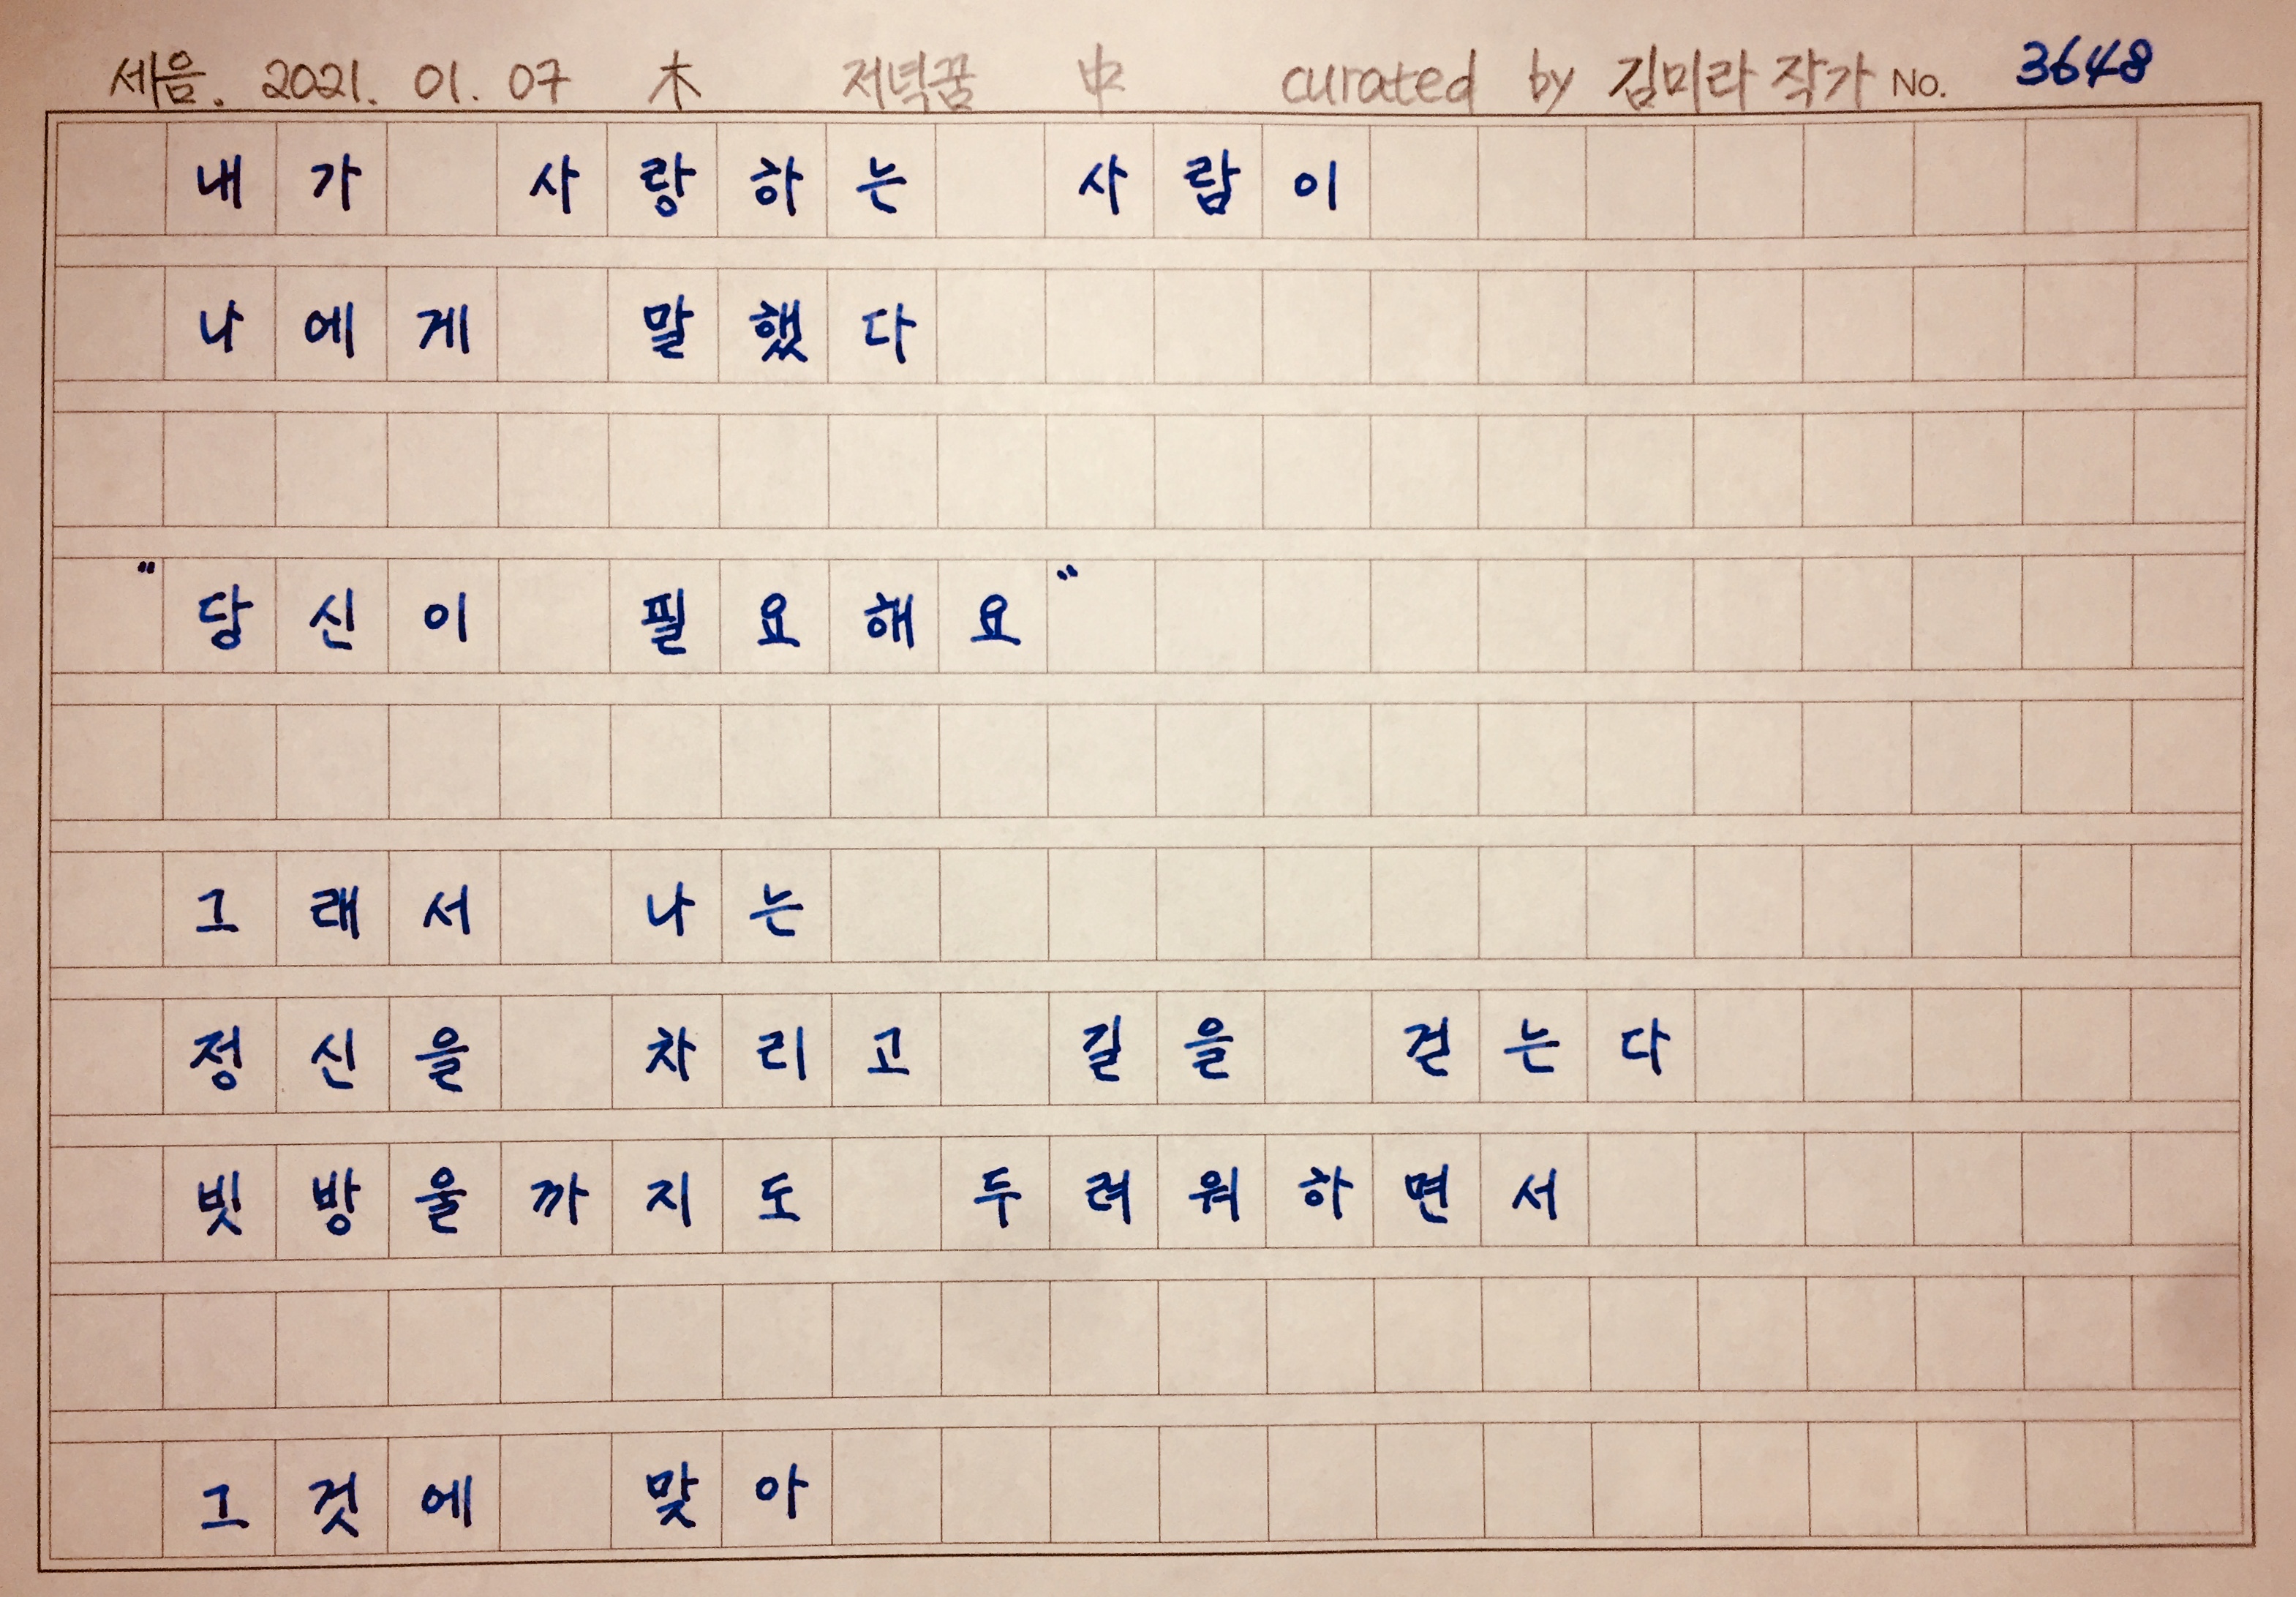 세음. 2021. 01. 07 木 저녁꿈 中 curated by 김미라 작가 No. 3648
내가 사랑하는 사람이
나에게 말했다
"당신이 필요해요"
그래서 나는
정신을 차리고 길을 걷는다
빗방울까지도 두려워하면서
그것에 맞아